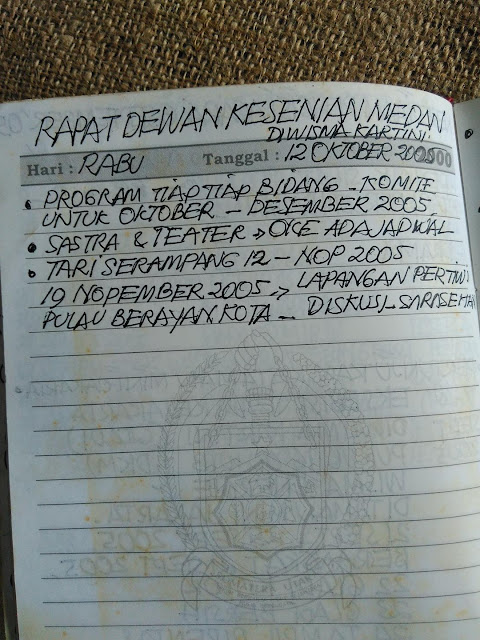 RAPAT DEWAN KESENIAN MEDAN
DIWISMA KARTINI
Hari : RABU Tanggal : 12 OKTOBER 2005
• PROGRAM TIAP TIAP BIDANG - KOMITE
UNTUK OKTOBER - DESEMBER 2005
• SASTRA & TEATER > OKE ADA JADWAL
• TARI SERAMPANG 12 - NOP 2005
19 NOPEMBER 2005 > LAPANGAN
PULAU BERAYAN KOTA - DISKUSI